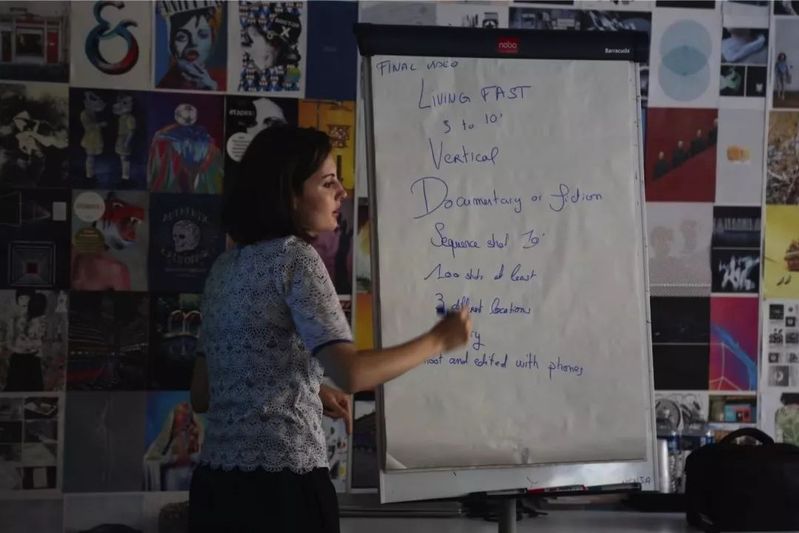 nobo
Barracuda
FINAL VIDEO
LIVING FAST
3 to 10'
Vertical
Documentary or fiction
Sequence shot 10'
100 shots at least
3 different locations
and edited with phones
&